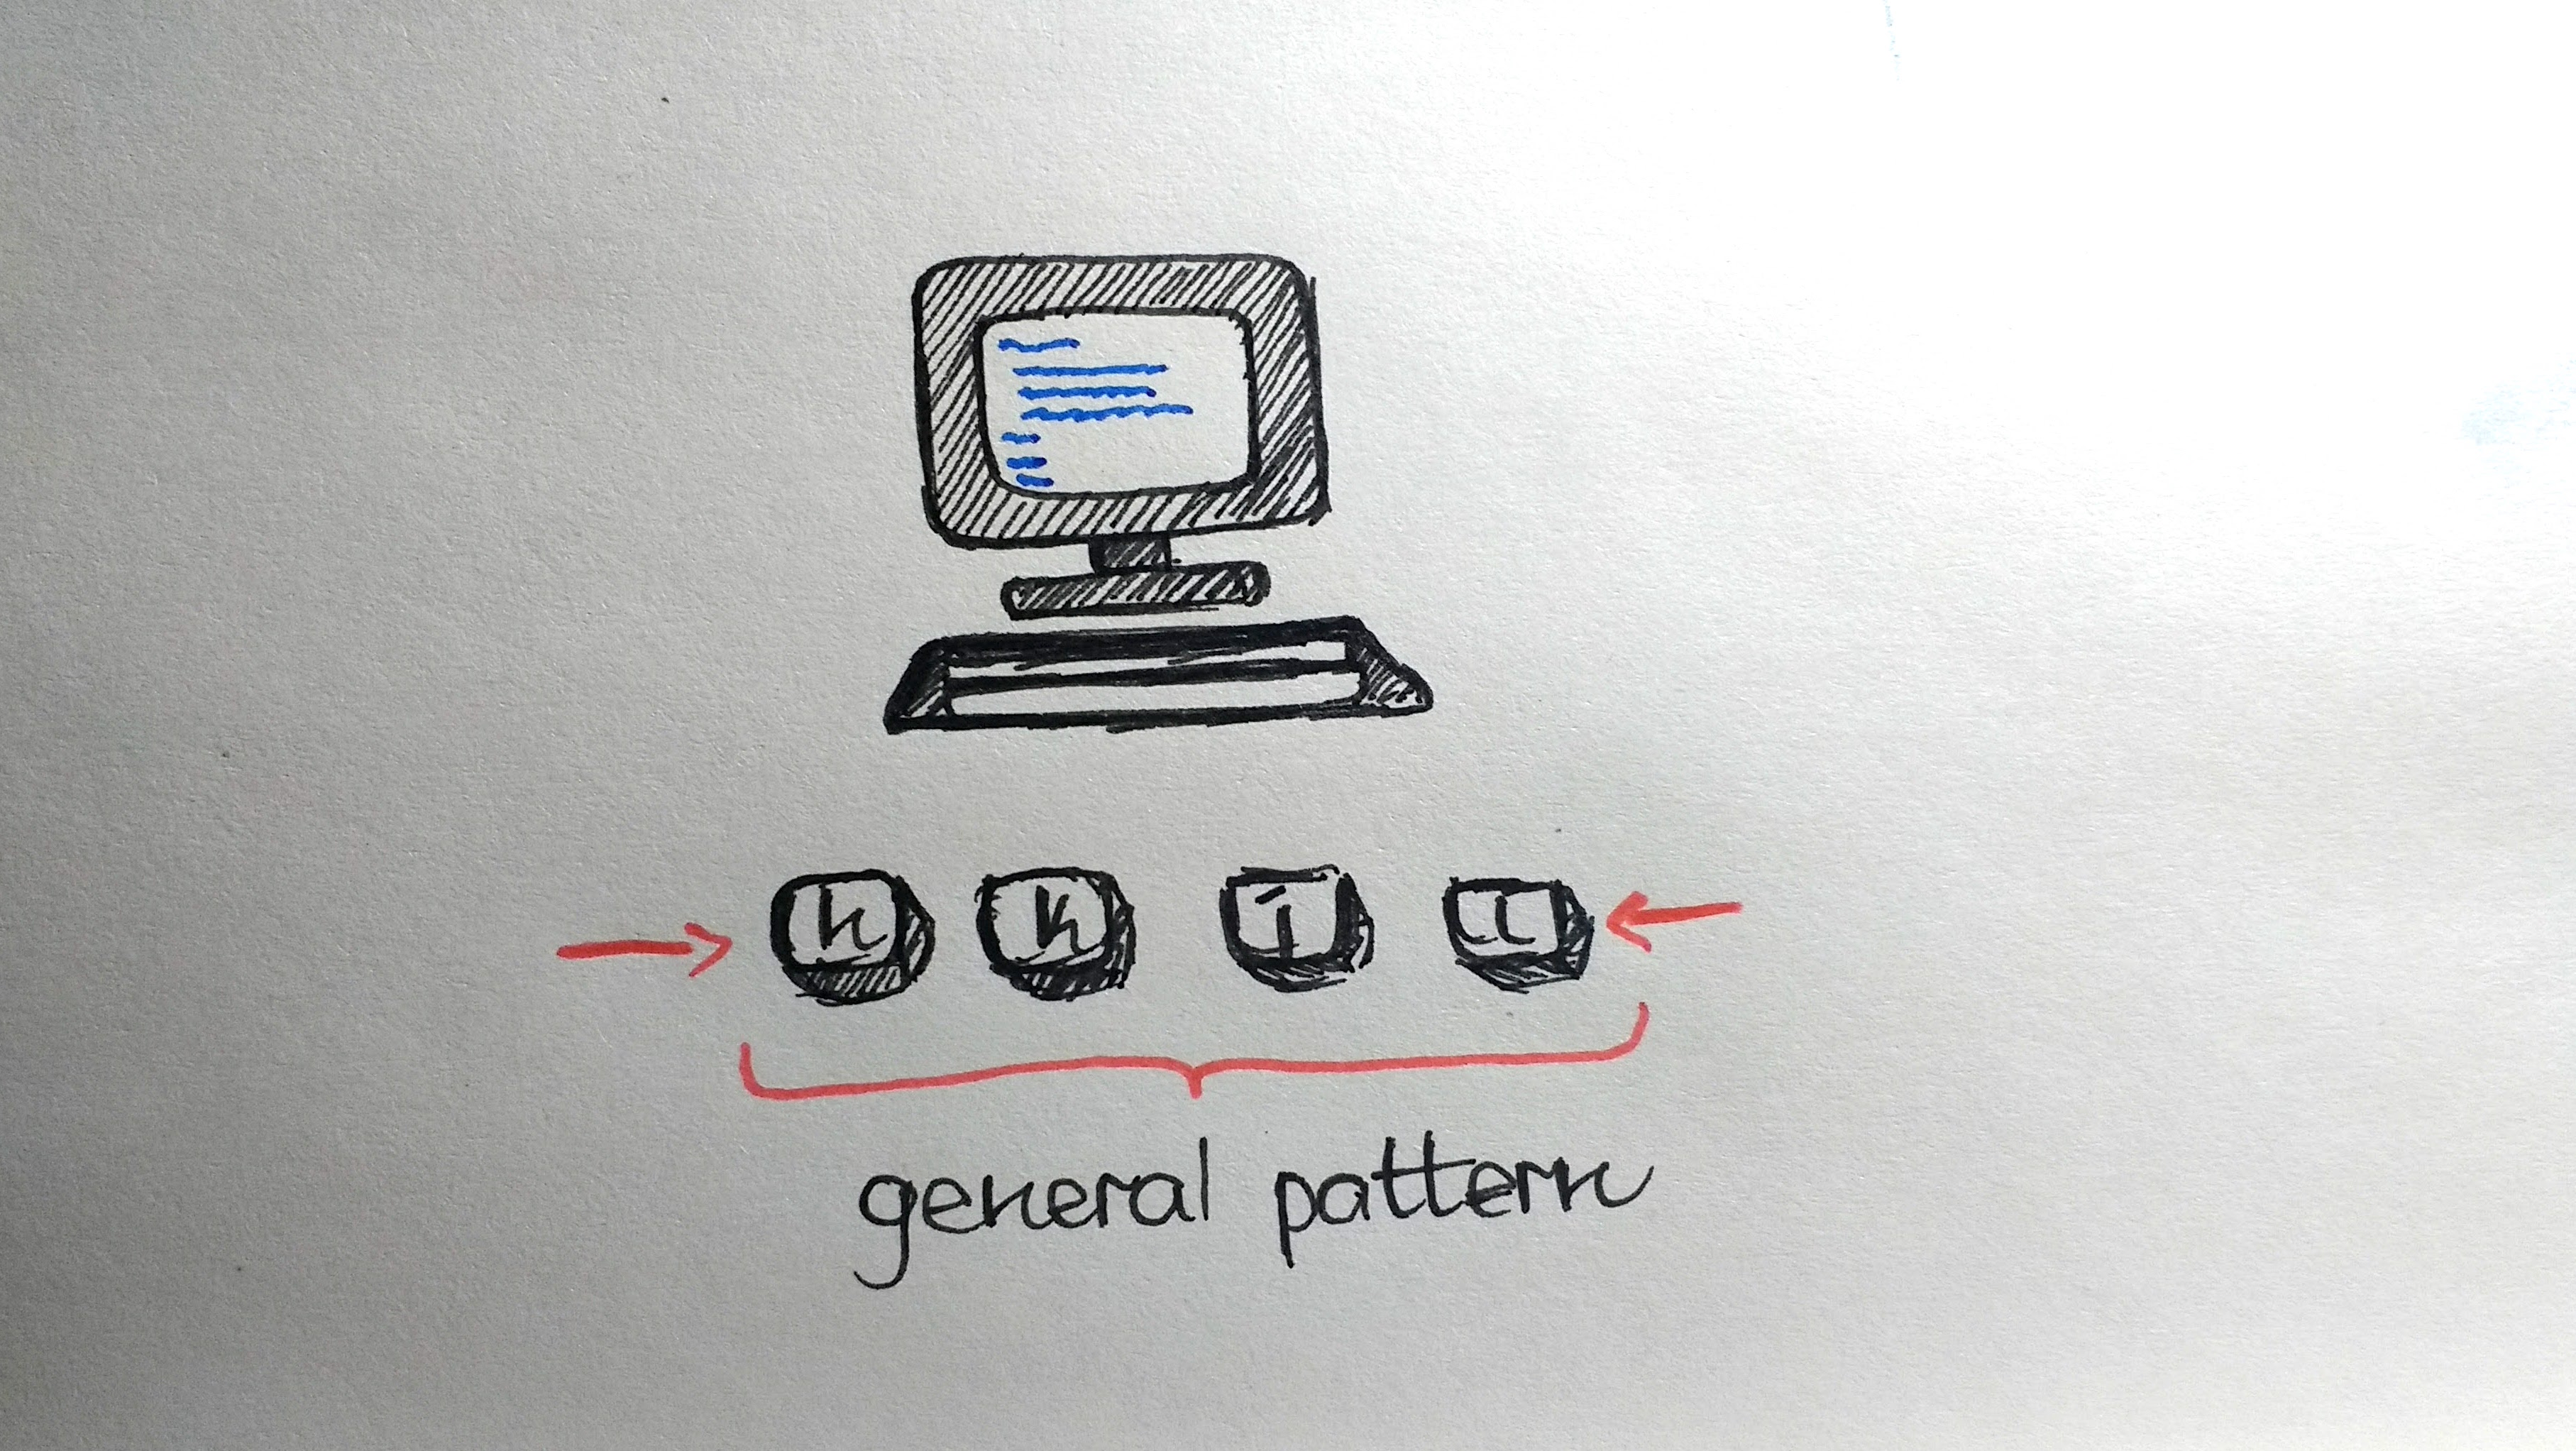 h k j l
general pattern